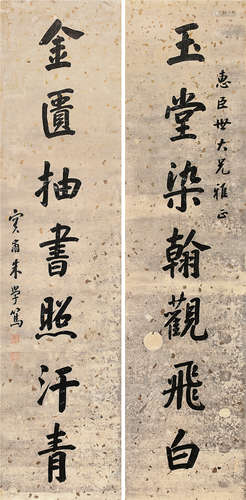 惠臣世大兄雅正
玉堂染翰觀飛白
金匱抽書照汗青
寅甫朱學篤